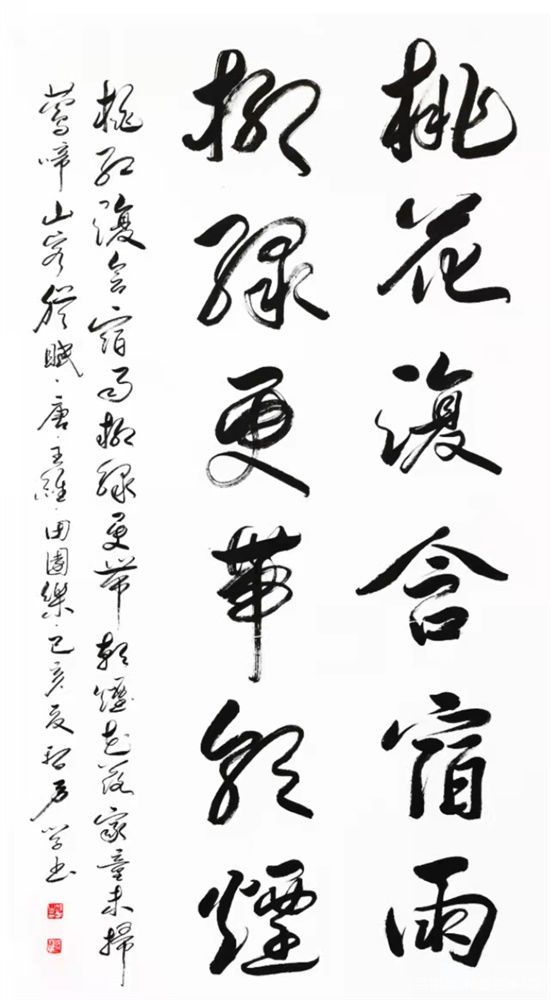 桃花復含宿雨
柳綠更帶朝煙
桃紅復含宿雨柳綠更帶朝煙花落家童未掃
鶯啼山客猶眠·唐·王維·田園樂·己亥夏 学书